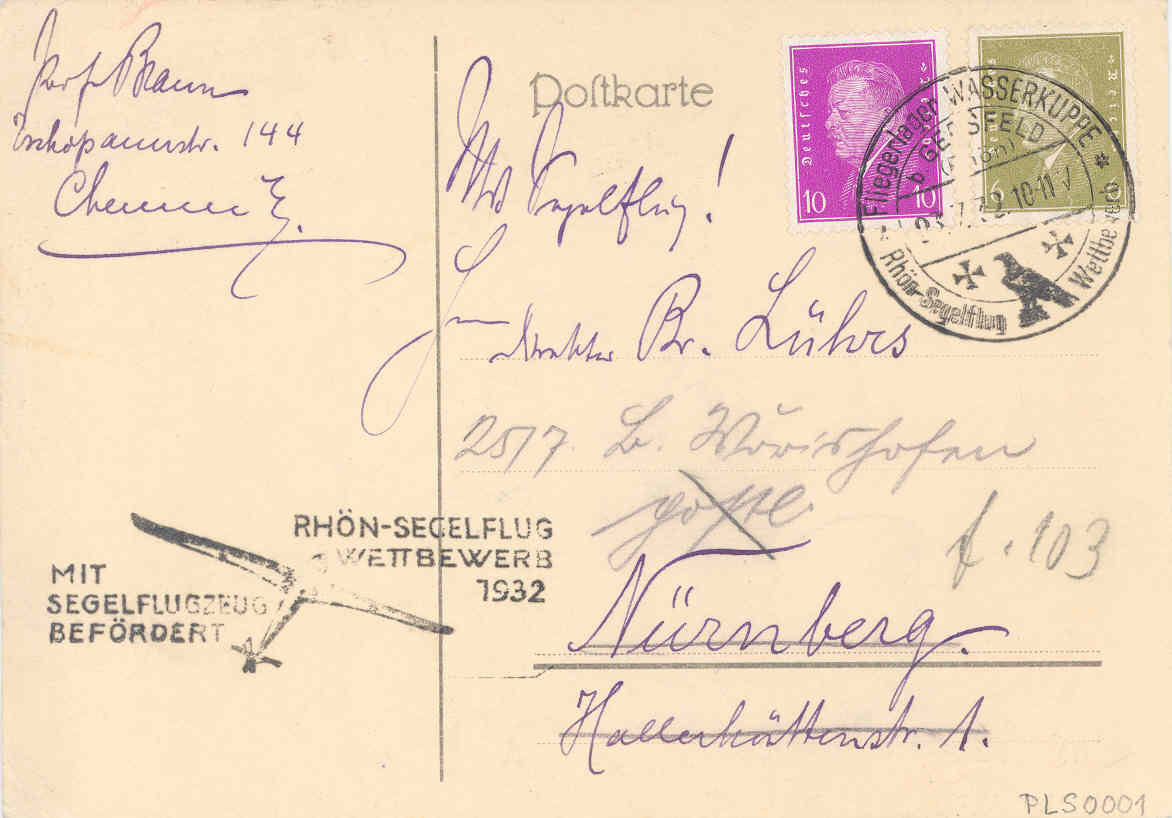 Postkarte
Braun
Zschopauerstr. 144
Chemnitz
Mit Segelflug!
Deutsches Reich
10 10
Deutsches Reich
6
Fliegerlager WASSERKUPPE
b GERSFELD
(Rhön)
23.7.32.10-11 V
Rhön-Segelflug Wettbewerb
Herrn
Direktor Br. Lührs
2517. B. Wörishofen
f. 103
Nürnberg.
Hallerhüttenstr. 1.
RHÖN-SEGELFLUG
WETTBEWERB
1932
MIT
SEGELFLUGZEUG
BEFÖRDERT
PLS0001